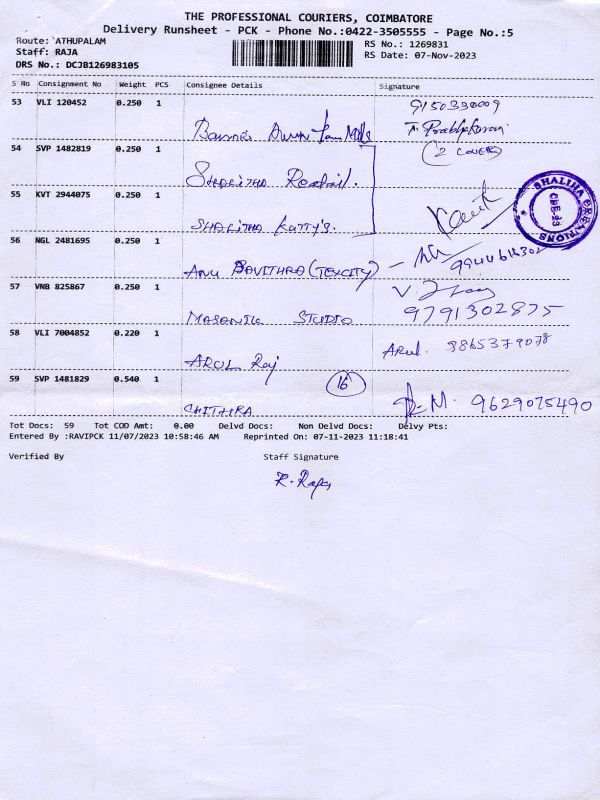 THE PROFESSIONAL COURIERS, COIMBATORE
Delivery Runsheet - PCK - Phone No.:0422-3505555 - Page No.:5
Route: ATHUPALAM
RS No.: 1269831
Staff: RAJA
RS Date: 07-Nov-2023
DRS No.: DCJB126983105
S No Consignment No Weight PCS Consignee Details Signature
53 VLI 120452 0.250 1 9150330009
Mills
54 SVP 1482819 0.250 1 (2 COVER)
SHALITHA
55 KVT 2944075 0.250 1
SHALITHA
SHALIHA CREATIONS
CBE-13
56 NGL 2481695 0.250 1
ANU PAVITHRA (TEXCITY)
57 VNB 825867 0.250 1 V.
MASONIC STUDIO 9791302875
58 VLI 7004852 0.220 1 Arul. 9865379078
ARUL Raj
59 SVP 1481829 0.540 1 16
CHITHRA M. 9629075490
Tot Docs: 59 Tot COD Amt: 0.00 Delvd Docs: Non Delvd Docs: Delvy Pts:
Entered By :RAVIPCK 11/07/2023 10:58:46 AM Reprinted On: 07-11-2023 11:18:41
Verified By Staff Signature
R. Raja